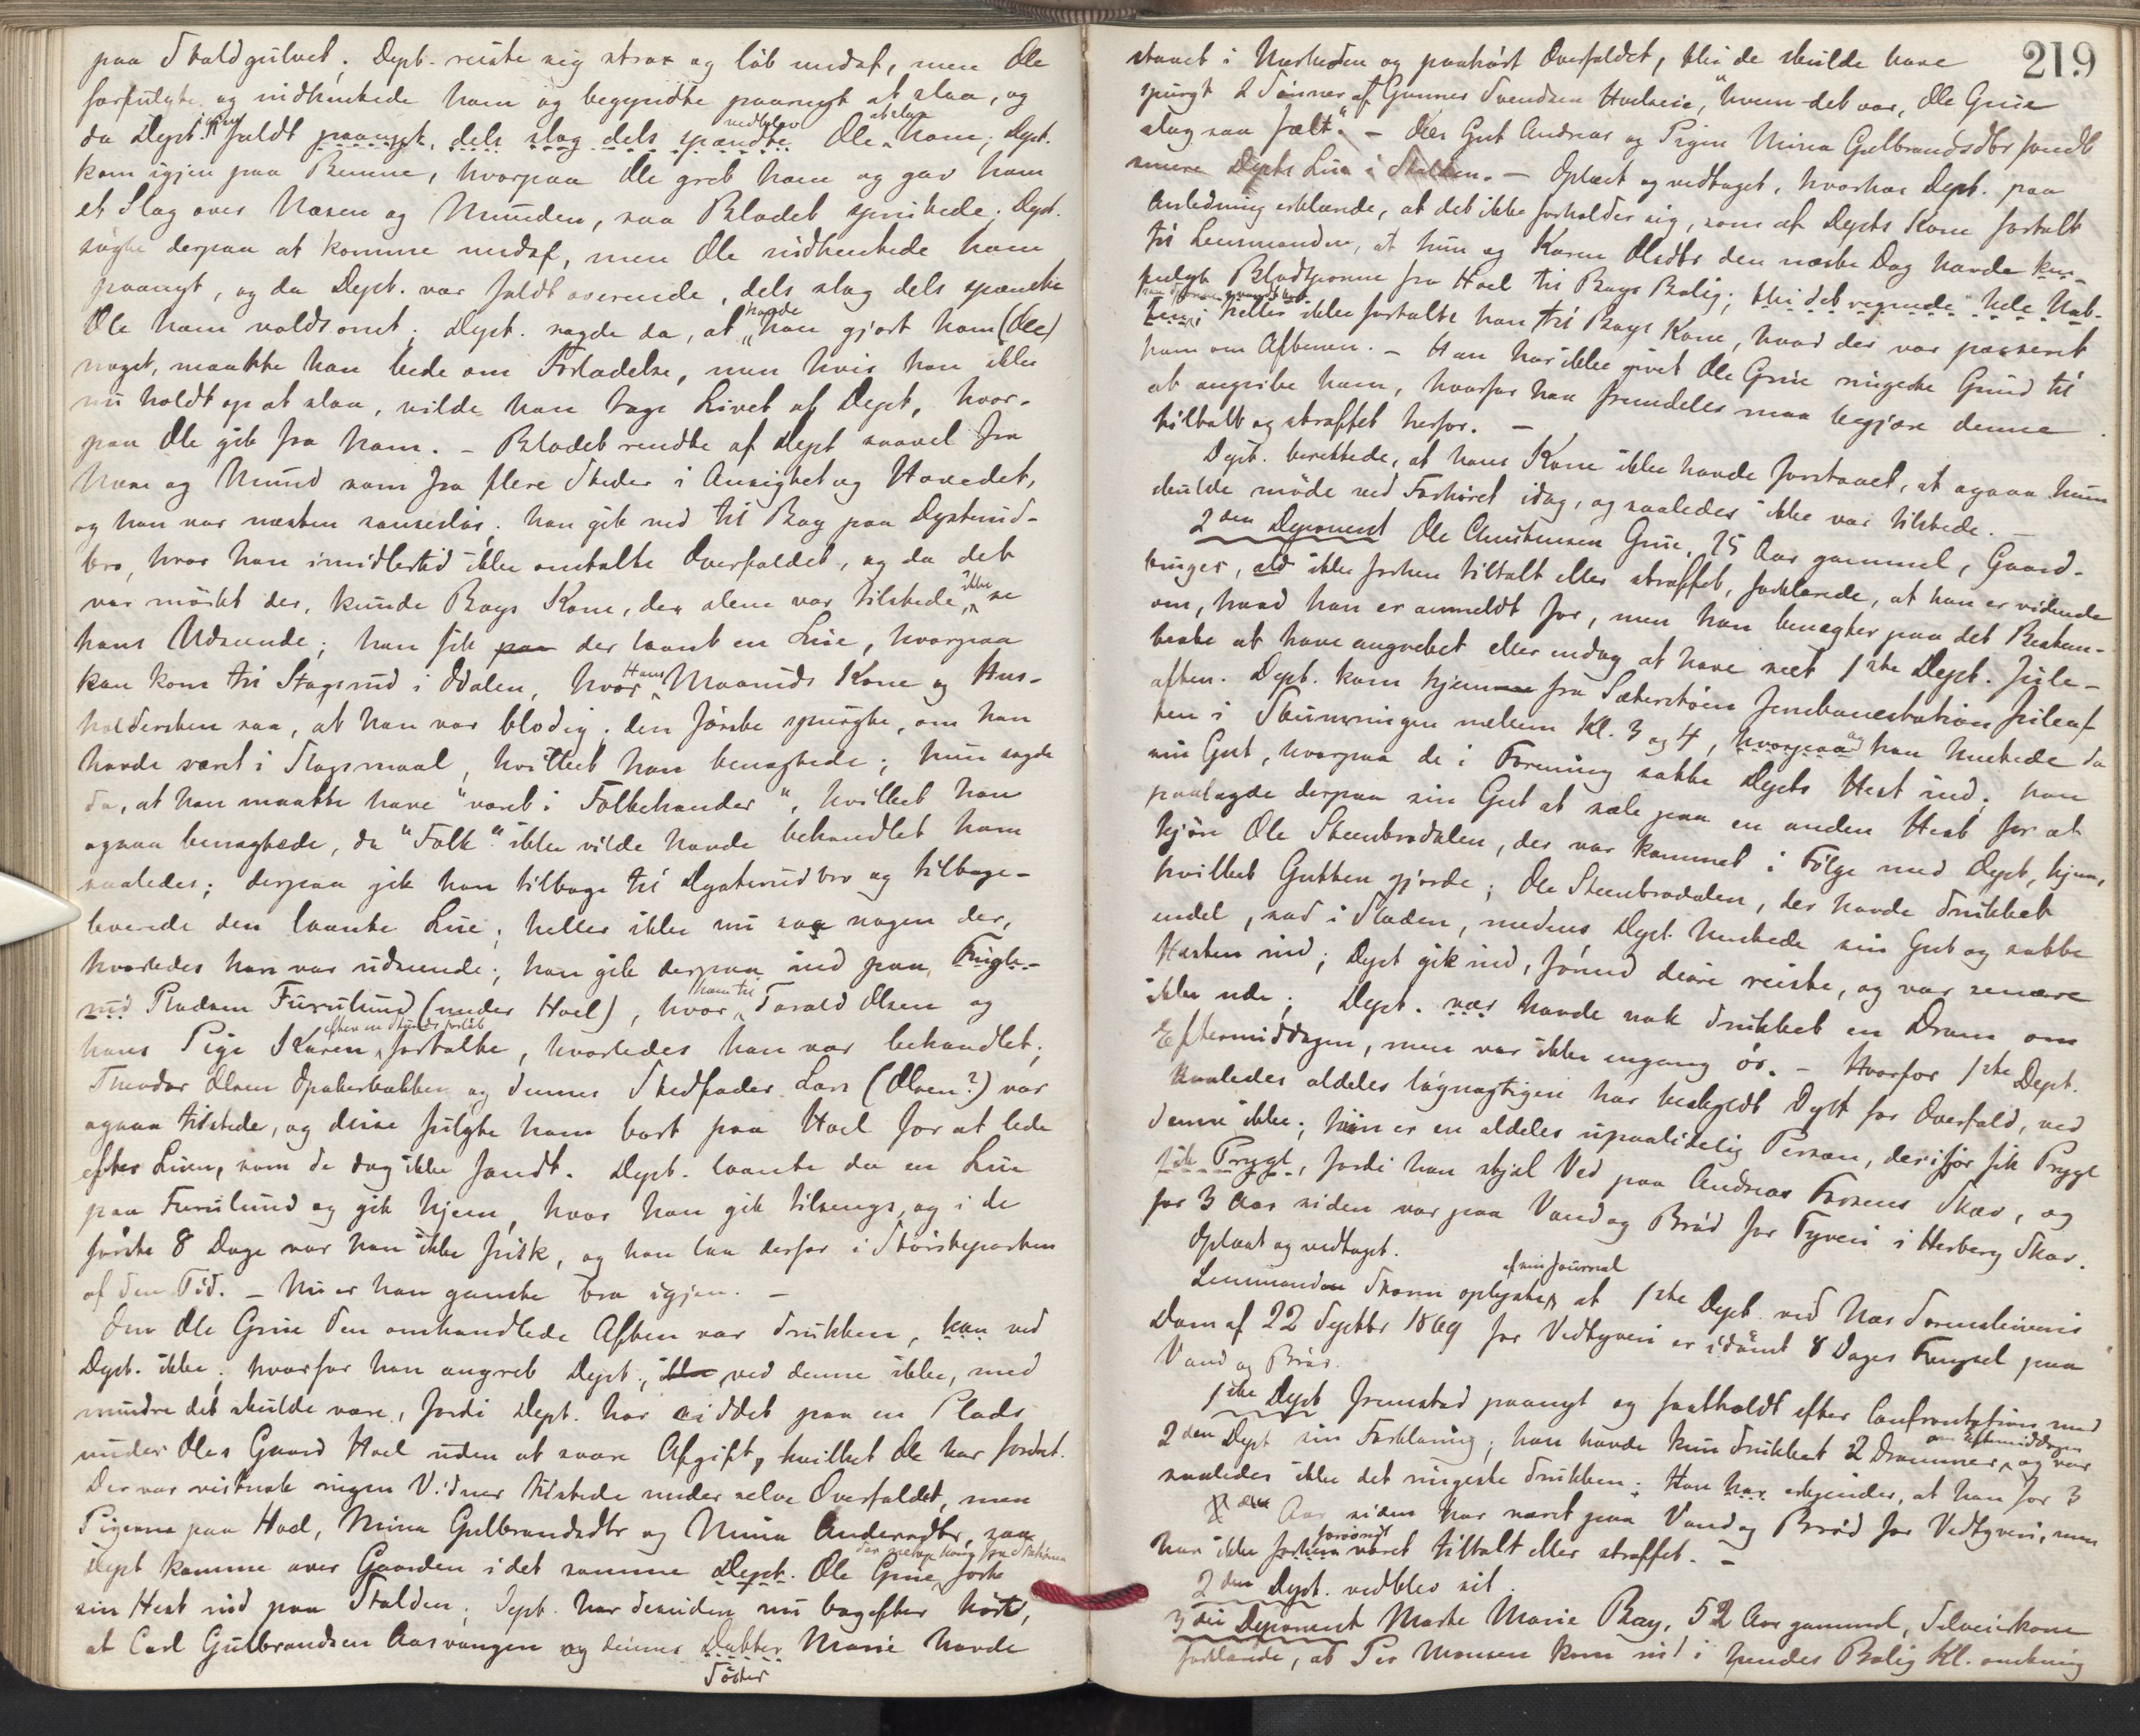 paa Staldgulvet; Dept. reiste sig strax og løb undaf, men Ole
forfulgte og indhentede ham og begyndte paanyt at slaa, og
da Dept. igjen faldt paanyt, dels slog dels spændte vedblev Ole at slaa ham; Dept.
kom igjen paa Benene, hvorpaa Ole greb ham og gav ham
et Slag over Næsen og Munden, saa Blodet sprutede; Dept.
søgte derpaa at komme undaf, men Ole indhentede ham
paanyt, og da Dept. var faldt overende, dels slog dels spændte
Ole ham voldsomt; Dept. sagde da, at "havde han gjort ham (Ole)
noget, maatte han bede om Forladelse, men hvis han ikke
nu holdt op at slaa, vilde han tage Livet af Dept, hvor-
paa Ole gik fra ham. - Blodet rendte af Dept saavel fra
Næse og Mund som fra flere Steder i Ansigtet og Hovedet,
og han var næsten sanseløs; han gik ned til Bay paa Dysterud-
bro, hvor han imidlertid ikke omtalte Overfaldet, og da det
var mørkt der, kunde Bays Kone, der alene var tilstede, ikke se
hans Udseende; han fik paa der laant en Lue, hvorpaa
han kom til Stagsrud i Odalen, hvor Hans Moaruds Kone og Hus-
holdersken saa, at han var blodig; den første spurgte, om han
havde været i Slagsmaal, hvilket han benægtede; hun sagde
da, at han maatte have "været i Folkehænder", hvilket han
ogsaa benægtede, da "Folk" ikke vilde havde behandlet ham
saaledes; derpaa gik han tilbage til Dysterudbro og tilbage-
leverede den laante Lue; heller ikke nu saa nogen der,
hvorledes han var udseende; han gik derpaa ind paa Fugle-
rud Pladsen Furulund (under Hoel), hvor han til Tarald Olsen og
hans Pige Karen efter en Stunds Forløb fortalte, hvorledes han var behandlet;
Theodor Olsen Opakerbakken og dennes Stedfader Lars (Olsen?) var
ogsaa tilstede, og disse fulgte ham bort paa Hoel for at lede
efter Luen, som de dog ikke fandt. Dept. laante da en Lue
paa Furulund og gik hjem, hvor han gik tilsengs, og i de
første 8 Dage var han ikke frisk, og han laa derfor i Størsteparten
af den Tid. - Nu er han ganske bra igjen. -
Om Ole Grue den omhandlede Aften var drukken, kan ved
Dept. ikke; hvorfor han angreb Dept., ikke ved denne ikke, med
mindre det skulde være, fordi Dept. har siddet paa en Plads
under Oles Gaard Hoel uden at svare Afgift, hvilket Ole har fordret.
Der var vistnok ingen Vidner tilstede under selve Overfaldet, men
Pigerne paa Hoel, Mina Gulbrandsdtr og Mina Andersdtr, saa
Dept komme over Gaarden i det samme Dept. Ole Grue, der netop kom fra Stationen førte
sin Hest ind paa Stalden; Dept. har desuden nu bagefter hørt,
at Carl Gulbrandsen Aasvangen og dennes Datter Marie havde
Søster
219
staaet i Nærheden og paahørt Overfaldet, thi de skulde have
spurgt 2 Sønner af Gunner Svendsen Hvalseie, "hvem det var, Ole Grue
slog saa fælt". - Oles Gut Andreas og Pigen Mina Gulbrandsdtr fandt
senere Depts Lue i Stalden. - Oplæst og vedtaget, hvorhos Dept. paa
Anledning erklærede, at det ikke forholder sig, som af Depts Kone fortalt
til Lensmanden, at hun og Karen Olsdtr den næste Dag havde kun-
fulgte Blodsporene fra Hoel til Bays Bolig; thi det regnede hele Nat-
ten; heller ikke fortalte han til Bays Kone, hvad der var passeret
ham om Aftenen. - Han har ikke givet Ole Grue ringeste Grund til
at angribe ham, hvorfor han fremdeles maa begjære denne
tiltalt og straffet herfor. -
Dept. berettede, at hans Kone ikke havde forstaaet, at ogsaa hun
skulde møde ved Forhøret idag, og saaledes ikke var tilstede. -
2den Deponent Ole Christensen Grue, 25 Aar gammel, Gaard-
bruger, ald ikke forhen tiltalt eller straffet, forklarede, at han er vidende
om, hvad han er anmeldt for, men han benægter paa det Bestem-
teste at have angrebet eller endog at have seet 1ste Dept. Jule-
aften. Dept. kom hjemme fra Sæterstøen Jernbanestation Juleaf-
ten i Skumringen mellem Kl. 3 og 4, hvorpaa og han hentede da
sin Gut, hvorpaa de i Forening satte Depts Hest ind; han
paalagde derpaa sin Gut at sæle paa en anden Hest for at
kjøre Ole Steenbrodalen, der var kommet i Følge med Dept, hjem,
hvilket Gutten gjorde; Ole Steenbrodalen, der havde drukket
endel, sad i Slæden, medens Dept. hentede sin Gut og satte
Hesten ind; Dept gik ind, førend disse reiste, og var senere
ikke ude; Dept. var havde nok drukket en Dram om
Eftermiddagen, men var ikke engang ør. - Hvorfor 1ste Dept.
saaledes aldeles løgnagtigen har beskyldt Dept for Overfald, ved
denne ikke; hiin er en aldeles upaalidelig Person, der ifjor fik Prygl
fik Prygl, fordi han stjal Ved paa Andreas Forsens Skov, og
for 3 Aar siden var paa Vand og Brød for Tyveri i Herberg Skov.
Oplæst og vedtaget.
Lensmanden Thorn oplyste af sin Journal, at 1ste Dept ved Næs Sorenskriveris
Dom af 22 Septbr 1869 for Vedtyveri er idømt 8 Dages Fængsel paa
Vand og Brød.
1ste Dept fremstod paanyt og fastholdt efter Confrontation med
2den Dept sin Forklaring; han havde kun drukket 2 Drammer om Eftermiddagen og var
saaledes ikke det ringeste drukken; Han har erkjender, at han for 3
Aar siden har været paa Vand og Brød for Vedtyveri, men
har ikke forhen forøvrigt været tiltalt eller straffet. -
2den Dept. vedblev sit.
3die Deponent Marte Marie Bay, 52 Aar gammel, Selveierkone
forklarede, at Per Monsen kom ind i hendes Bolig Kl. omkring